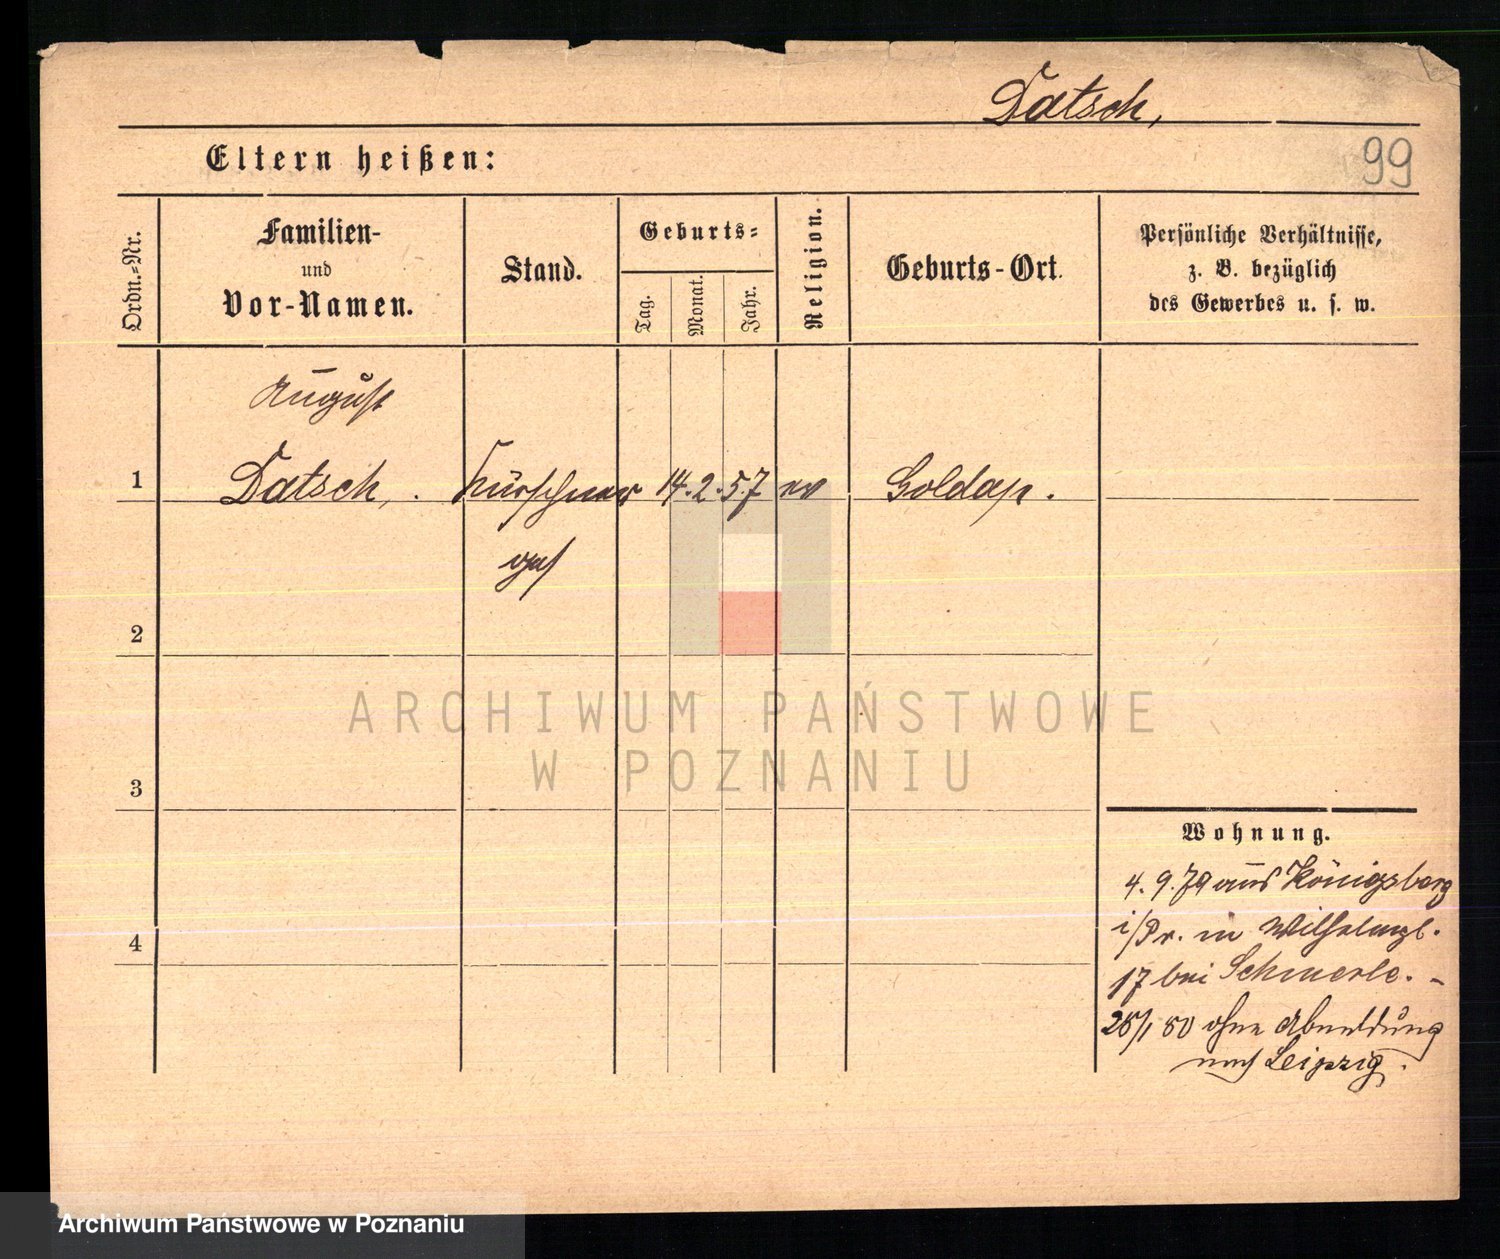 Datsch,
Eltern heißen:
99
Ordn.=Nr.
Familien-
und
Vor-Namen.
Stand.
Geburts=
Tag.
Monat.
Jahr.
Religion.
Geburts-Ort.
Persönliche Verhältnisse,
z. B. bezüglich
des Gewerbes u. s. w.
August
1 Datsch, . Kürschner 14. 2. 57 ev Goldap.
2
3
4
ARCHIWUM PAŃSTWOWE
W POZNANIU
Wohnung.
4. 9. 79 aus Königsberg
i/Pr. in Wilhelmpl.
17 bei Schmerle. -
28/1 80 ohne Abmeldung
nach Leipzig.
Archiwum Państwowe w Poznaniu